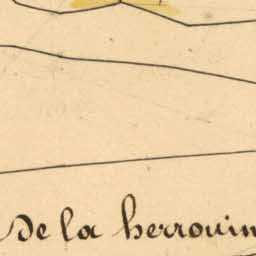 De la herrouin